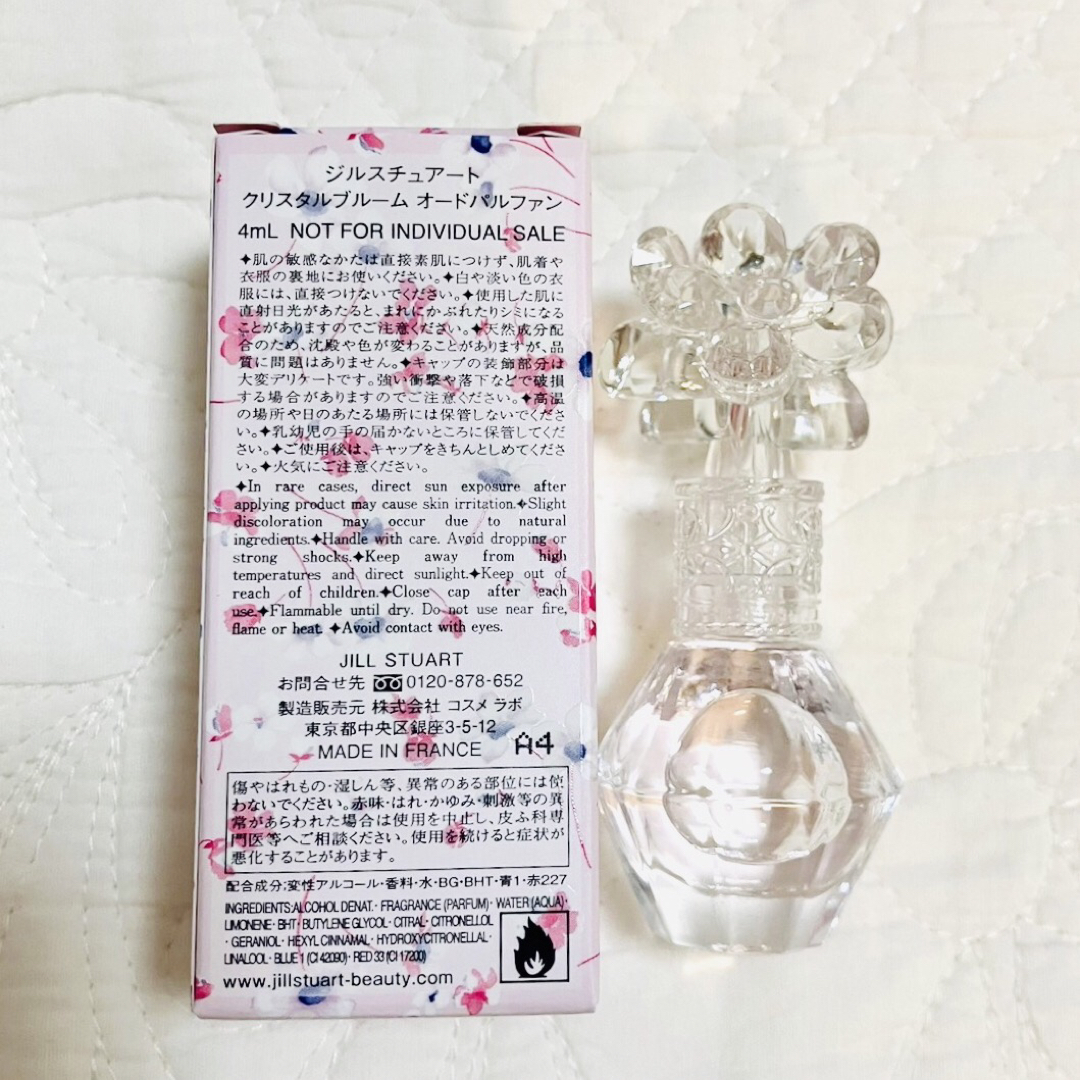 ジルスチュアート
クリスタルブルーム オードパルファン
4mL NOT FOR INDIVIDUAL SALE
✦肌の敏感なかたは直接素肌につけず、肌着や
衣服の裏地にお使いください。✦白や淡い色の衣
服には、直接つけないでください。✦使用した肌に
直射日光があたると、まれにかぶれたりシミになる
ことがありますのでご注意ください。✦天然成分配
合のため、沈殿や色が変わることがありますが、品
質に問題はありません。✦キャップの装飾部分は
大変デリケートです。強い衝撃や落下などで破損
する場合がありますのでご注意ください。✦高温
の場所や日のあたる場所には保管しないでくださ
い。✦乳幼児の手の届かないところに保管してくだ
さい。✦ご使用後は、キャップをきちんとしめてくださ
い。✦火気にご注意ください。
✦In rare cases, direct sun exposure after
applying product may cause skin irritation.✦Slight
discoloration may occur due to natural
ingredients.✦Handle with care. Avoid dropping or
strong shocks.✦Keep away from high
temperatures and direct sunlight.✦Keep out of
reach of children.✦Close cap after each
use.✦Flammable until dry. Do not use near fire,
flame or heat. ✦Avoid contact with eyes.
JILL STUART
お問合せ先 0120-878-652
製造販売元 株式会社 コスメ ラボ
東京都中央区銀座3-5-12
MADE IN FRANCE A4
傷やはれもの・湿しん等、異常のある部位には使
わないでください。赤味・はれ・かゆみ・刺激等の異
常があらわれた場合は使用を中止し、皮ふ科専
門医等へご相談ください。使用を続けると症状が
悪化することがあります。
配合成分:変性アルコール・香料・水・BG・BHT・青1・赤227
INGREDIENTS:ALCOHOL DENAT.・FRAGRANCE (PARFUM)・WATER (AQUA)・
LIMONENE・BHT・BUTYLENE GLYCOL・CITRAL・CITRONELLOL
・GERANIOL・HEXYL CINNAMAL・HYDROXYCITRONELLAL・
LINALOOL・BLUE 1 (CI 42090)・RED 33 (CI 17200)
www.jillstuart-beauty.com